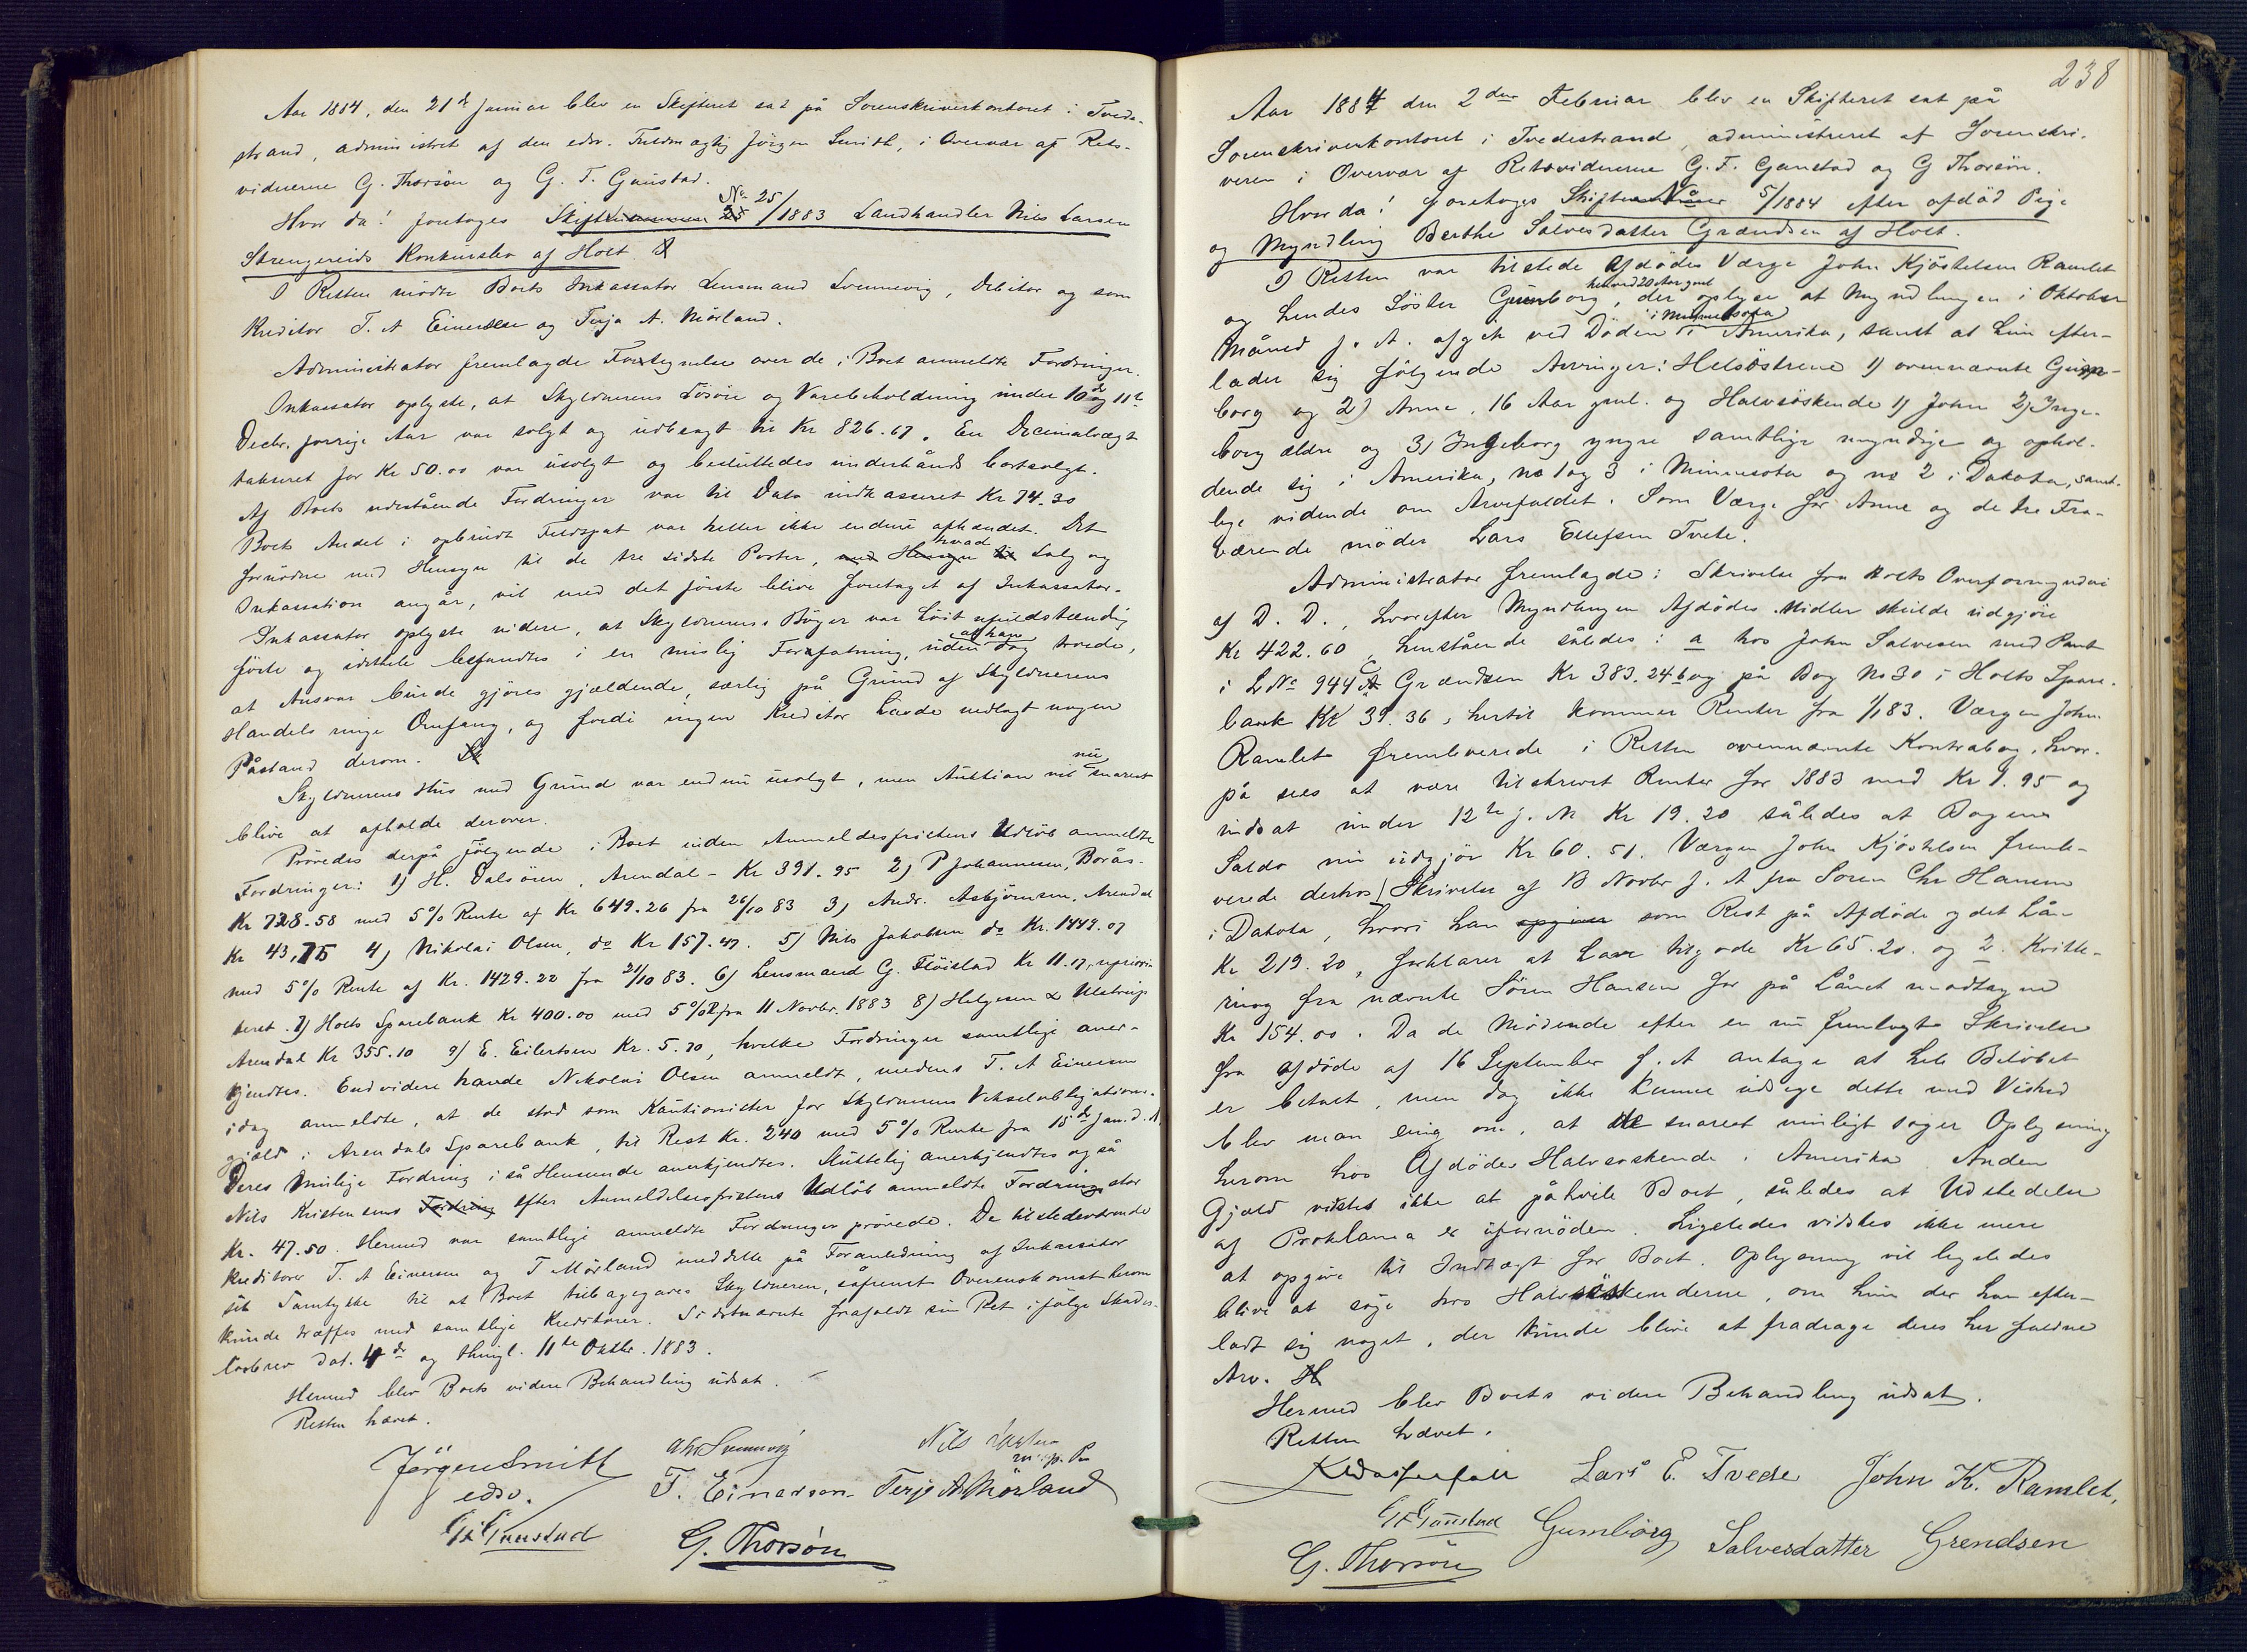 Aar 1884, den 21de Januar blev en Skifteret sat på Sorenskriverkontoret i Tvede-
strand, administreret af den edsv. Fuldmægtig Jörgen Smith, i Overvær af Rets-
vidnerne G. Thorsön og G. F. Gaustad.
No 25
Hvor da! foretoges Skifte 25/1883 Landhandler Nils Larsen
Strengereids Konkursbo af Holt.
I Retten mödte Boets Inkassator Lensmand Svennevig, Debitor og som
Kreditor T. A Einersen og Terje A. Mörland.
Administrator fremlagde Fortegnelse over de i Boet anmeldte Fordringer.
Inkassator oplyste, at Skyldnerens Lösöre og Varebeholdning under 10de og 11te
Decbr. forrige Aar var solgt og udbragt til Kr 826.67. En Decimalvægt
takseret for Kr 50.00 var usolgt og besluttedes underhånds bortsolgt.
Af Boets udestående Fordringer var til Dato indkasseret Kr 74.30
Boets Andel i opbrudt Feldspat var heller ikke endnu afhændet. Det
hvad
fornödne med Hensyn til de tre sidste Poster, med Hensyn til Salg og
Inkassation angår, vil med det förste blive foretaget af Inkassator.
Inkassator oplyste videre, at Skyldnerens Böger var höist ufuldstændig
at han
förte og idethele befandtes i en mislig Forfatning, uden dog troede,
at Ansvar burde gjöres gjældende, særlig på Grund af Skyldnerens
Handels ringe Omfang, og fordi ingen Kreditor havde nedlagt nogen
Påstand derom.
nu
Skyldnerens Hus med Grund var endnu usolgt, men Auktion vil snarest
blive at afholde derover.
Prövedes derpå fölgende i Boet inden Anmeldesfristens Udlöb anmeldte
Fordringer: 1) H. Dalsören, Arendal - Kr 391.95 2) P Johannesen, Borås-
Kr 728.58 med 5% Rente af Kr 649.26 fra 26/10 83 3) Andr. Asbjörnsen, Arendal
Kr 43,75 4) Nikolai Olsen, do Kr 157.47. 5) Nils Jakobsen do Kr. 1449.07
med 5% Rente af Kr. 1429.22 fra 21/10 83. 6) Lensmand G. Flöistad Kr 11.17, upriori-
teret. 7) Holts Sparebank Kr 400.00 med 5% R fra 11 Novbr. 1883 8) Helgesen & Ulstrup
Arendal Kr 355.10 9) E. Eilertsen Kr. 5.70, hvilke Fordringer samtlige aner-
kjendtes. Endvidere havde Nikolai Olsen anmeldt, medens T. A Einersen
idag anmeldte, at de stod som Kautionister for Skyldnerens Vekselobligations-
gjæld i Arendals Sparebank, til Rest Kr. 240 med 5% Rente fra 15de Jan. d. A.
Deres mulige Fordring i så Henseende anerkjendtes. Sluttelig anerkjendtes også
Nils Kristensens Fordring efter Anmeldelsesfristens Udlöb anmeldte Fordring stor
Kr. 47.50. Hermed var samtlige anmeldte Fordringer prövede. De tilstedeværende
Kreditorer T. A Einersen og T Mörland meddelte på Foranledning af Inkassator
sit Samtykke til at Boet tilbagegaves Skyldneren, såfremt Overenskomst herom
kunde træffes med samtlige Kreditorer. Sidstnævnte frafaldt sin Ret ifölge Skades-
lösbrev dat. 4de og thingl. 11te Oktbr. 1883.
Hermed blev Boets videre Behandling udsat.
Retten hævet.
Jörgen Smith
edsv.
Svennevig
Nils Larsen
m. p. P.
T. Einarson Terje A Mörland
G F Gaustad
G. Thorsön
238
Aar 1884 den 2den Februar blev en Skifteret sat på
Sorenskriverkontoret i Tvedestrand, administreret af Sorenskri-
veren i Overvær af Retsvidnerne G. F. Gaustad og G Thorsön.
Hvor da! foretoges Skifte No 5/1884 efter afdöd Pige
og Myndling Berthe Salvesdatter Grændsen af Holt.
I Retten var tilstede Afdödes Værge John Kjöstelsen Ramlet
henved 20 Aar gml
og hendes Söster Gunborg, der oplyse at Myndlingen i Oktober
i Minnesota
Måned f. A. afgik ved Döden i Amerika, samt at hun efter-
lader sig fölgende Arvinger: Helsöstrene 1) ovennævnte Gun-
borg og 2) Anne, 16 Aar gml. og Halvsöskende 1) John 2) Inge-
borg ældre og 3) Ingeborg yngre samtlige myndige og ophol-
dende sig i Amerika, no 1 og 3 i Minnesota og no 2 i Dakota, samt-
lige vidende om Arvefaldet. Som Værge for Anne og de tre Fra-
værende möder Lars Ellefsen Tvete.
Administrator fremlagde: Skrivelse fra Holts Overformynderi
af D. D., hvorefter Myndlingen Afdödes Midler skulde udgjöre
Kr 422.60, henstående således: a hos John Salvesen med Pant
i LNo 944 c Grændsen Kr 383.24 b og på Bog No 30 i Holts Spare-
bank Kr 39.36, hertil kommer Renter fra 1/1 83. Værgen John
Ramlet fremleverede i Retten ovennævnte Kontrabog, hvor-
på sees at være tilskrevet Renter for 1883 med Kr 1.95 og
indsat under 12te f. M. Kr 19.20 således at Bogens
Saldo nu udgjör Kr 60.51. Værgen John Kjöstelsen fremle-
verede derhos 1 Skrivelse af 13 Novbr f. A fra Sören Chr Hansen
i Dakota, hvori han opgiver som Rest på Afdöde ydet Lån
Kr 219.20, forklarer at have tilgode Kr 65.20. og 2. Kvitte-
ring fra nævnte Sören Hansen for på Lånet modtagne
Kr 154.00. Da de Mödende efter en nu fremlagt Skrivelse
fra Afdöde af 16 September f. A antage at hele Belöbet
er betalt, men dog ikke kunne udsige dette med Vished
blev man enig om, at de snarest muligt söger Oplysning
herom hos Afdödes Halvsöskende i Amerika Anden
Gjæld vistes ikke at påhvile Boet, således at Udstedelse
af Proklama er ufornöden. Ligeledes vidstes ikke mere
at opgive til Indtægt for Boet. Oplysning vil ligeledes
blive at söge hos Halvsöskenderne, om hun der har efter-
ladt sig noget, der kunde blive at fradrage deres her faldne
Arv.
Hermed blev Boets videre Behandling udsat.
Retten hævet.
Lars E. Tvede John K. Ramlet,
G F Gaustad Gumborg Salvesdatter Grendsen
G. Thorsön